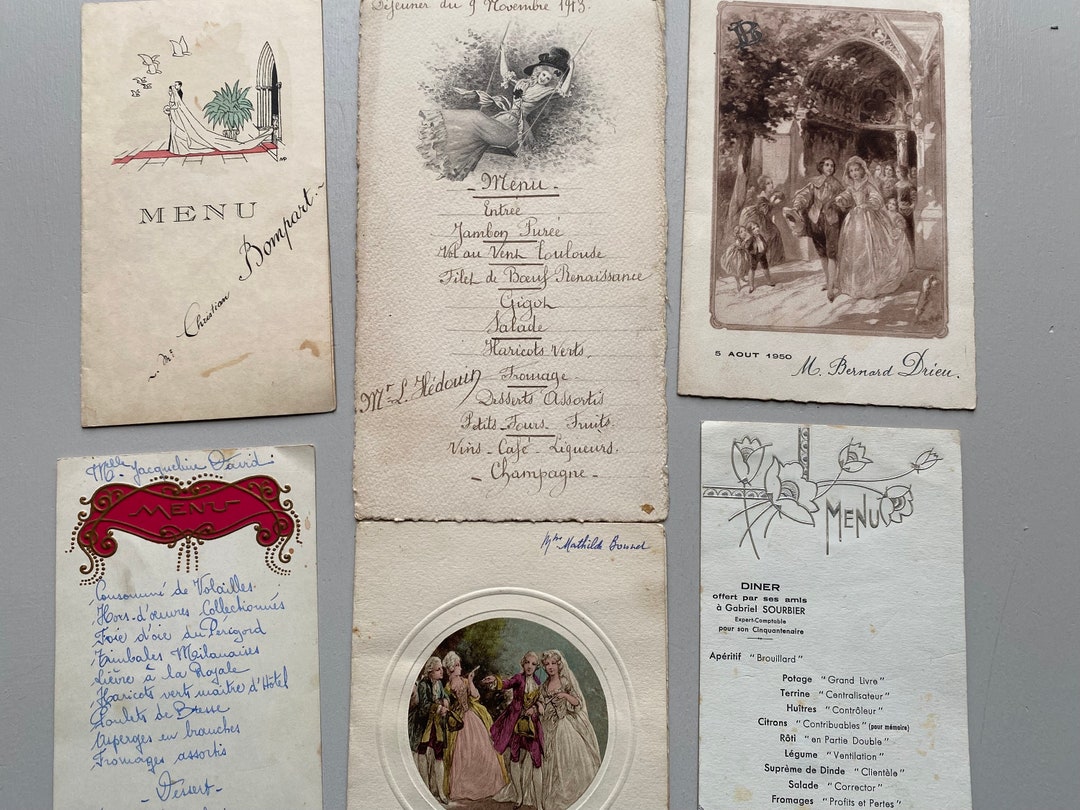 MENU
Mr Christian Bompart
Déjeuner du 9 Novembre 1913.
- Menu -
Entrée
Jambon Purée
Vol au Vent Toulouse
Filet de Bœuf Renaissance
Gigot
Salade
Haricots verts.
Fromage
Mr L. Hédouin
Desserts Assortis
Petits-Fours Fruits.
Vins - Café - Liqueurs.
- Champagne -
5 AOUT 1950
M. Bernard Drieu.
Melle Jacqueline David
MENU
Consommé de Volailles.
Hors-d'œuvres Collectionnés
Foie d'oie du Périgord
Timbales Milanaises
Lièvre à la Royale
Haricots verts maître d'Hôtel
Poulets de Bresse
Asperges en branches
Fromages assortis
- Dessert -
Mme Mathilde Bonnet
MENU
DINER
offert par ses amis
à Gabriel SOURBIER
Expert-Comptable
pour son Cinquantenaire
Apéritif "Brouillard"
Potage "Grand Livre"
Terrine "Centralisateur"
Huîtres "Contrôleur"
Citrons "Contribuables" (pour mémoire)
Rôti "en Partie Double"
Légume "Ventilation"
Suprème de Dinde "Clientèle"
Salade "Corrector"
Fromages "Profits et Pertes"